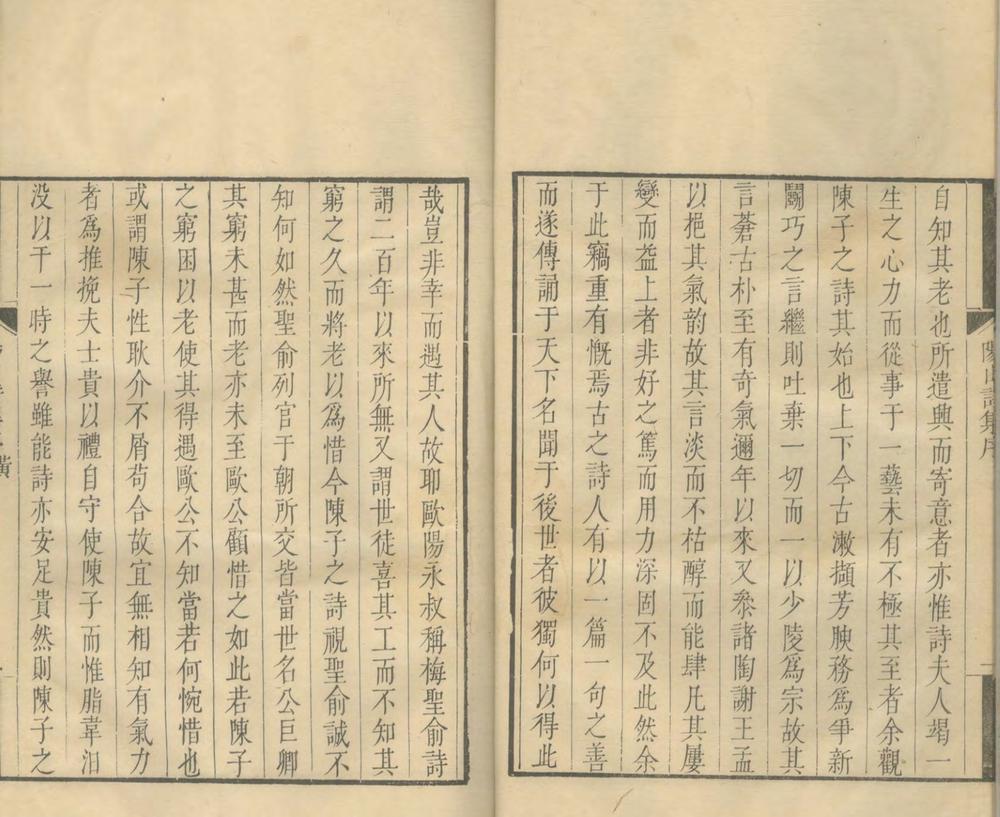 自知其老也所遣興而寄意者亦惟詩夫人竭一
生之心力而從事于一藝未有不極其至者余觀
陳子之詩其始也上下今古漱擷芳腴務爲爭新
鬭巧之言繼則吐棄一切而一以少陵爲宗故其
言蒼古朴至有奇氣邇年以來又叅諸陶謝王孟
以挹其氣韵故其言淡而不枯醇而能肆凡其屢
變而益上者非好之篤而用力深固不及此然余
于此竊重有慨焉古之詩人有以一篇一句之善
而遂傳誦于天下名聞于後世者彼獨何以得此
哉豈非幸而遇其人故耶歐陽永叔稱梅聖俞詩
謂二百年以來所無又謂世徒喜其工而不知其
窮之久而將老以爲惜今陳子之詩視聖俞誠不
知何如然聖俞列官于朝所交皆當世名公巨卿
其窮未甚而老亦未至歐公顧惜之如此若陳子
之窮困以老使其得遇歐公不知當若何惋惜也
或謂陳子性耿介不屑苟合故宜無相知有氣力
者爲推挽夫士貴以禮自守使陳子而惟脂韋汨
没以干一時之譽雖能詩亦安足貴然則陳子之